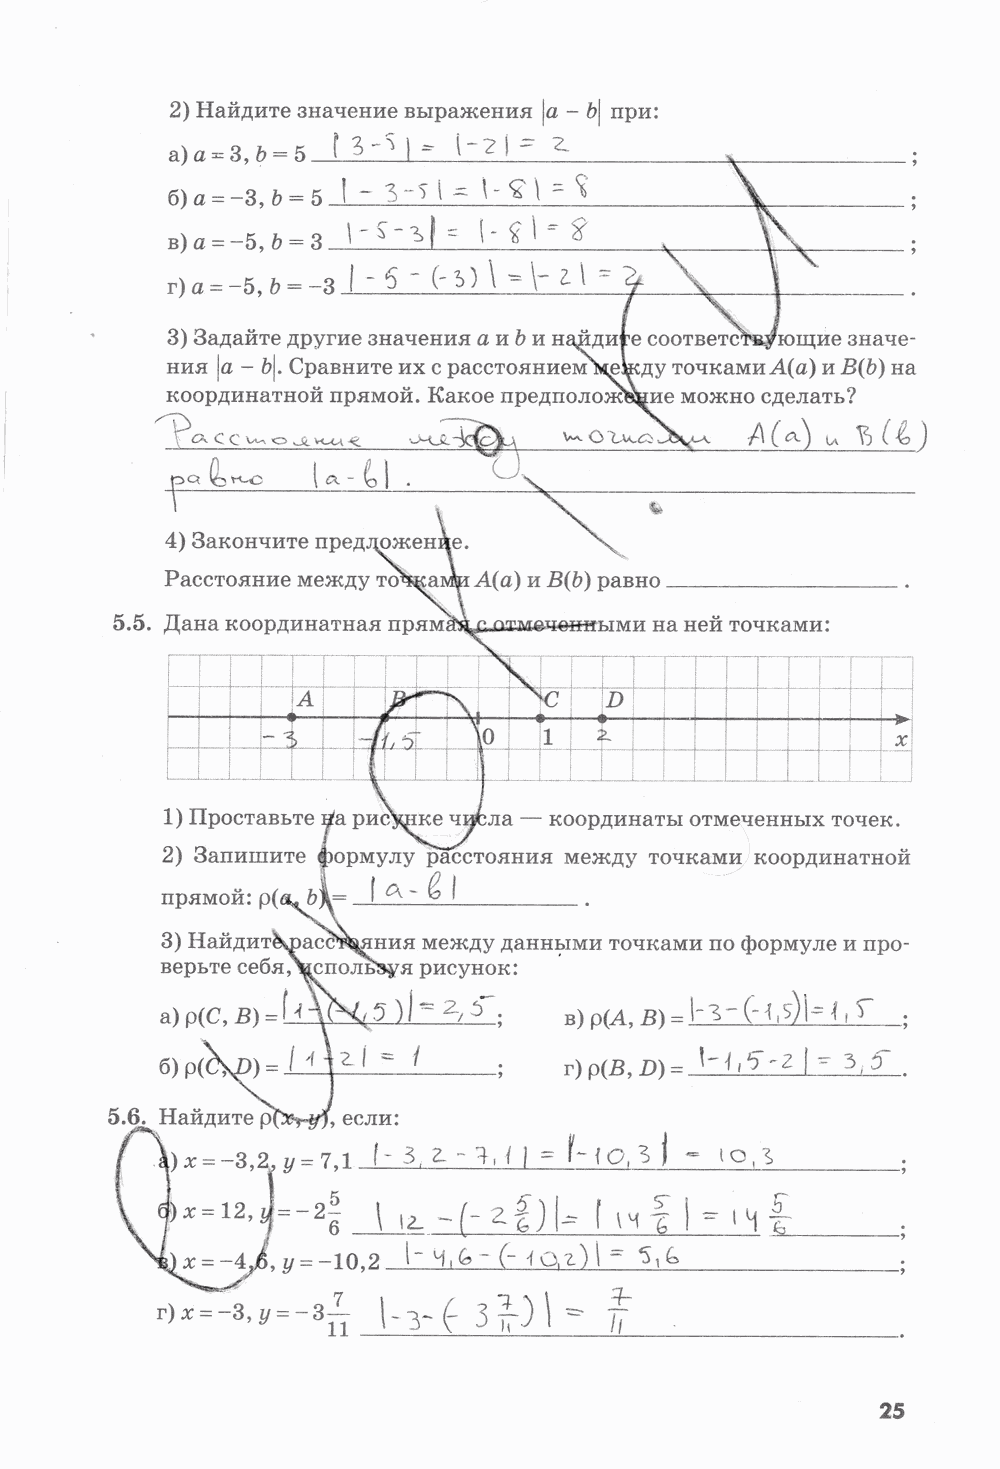 2) Найдите значение выражения |a − b| при:
а) a = 3, b = 5 |3-5| = |-2| = 2 ;
б) a = −3, b = 5 |-3-5| = |-8| = 8 ;
в) a = −5, b = 3 |-5-3| = |-8| = 8 ;
г) a = −5, b = −3 |-5-(-3)| = |-2| = 2 .
3) Задайте другие значения a и b и найдите соответствующие значе-
ния |a − b|. Сравните их с расстоянием между точками A(a) и B(b) на
координатной прямой. Какое предположение можно сделать?
Расстояние между точками A(a) и B(b)
равно |a-b|.
4) Закончите предложение.
Расстояние между точками A(a) и B(b) равно .
5.5. Дана координатная прямая с отмеченными на ней точками:
A B C D
-3 -1,5 0 1 2 x
1) Проставьте на рисунке числа — координаты отмеченных точек.
2) Запишите формулу расстояния между точками координатной
прямой: ρ(a, b) = |a-b| .
3) Найдите расстояния между данными точками по формуле и про-
верьте себя, используя рисунок:
а) ρ(C, B) = |1-(-1,5)| = 2,5 ; в) ρ(A, B) = |-3-(-1,5)| = 1,5 ;
б) ρ(C, D) = |1-2| = 1 ; г) ρ(B, D) = |-1,5-2| = 3,5 .
5.6. Найдите ρ(x, y), если:
а) x = −3,2, y = 7,1 |-3,2-7,1| = |-10,3| = 10,3 ;
б) x = 12, y = −2 5/6 |12-(-2 5/6)| = |14 5/6| = 14 5/6 ;
в) x = −4,6, y = −10,2 |-4,6-(-10,2)| = 5,6 ;
г) x = −3, y = −3 7/11 |-3-(-3 7/11)| = 7/11 .
25